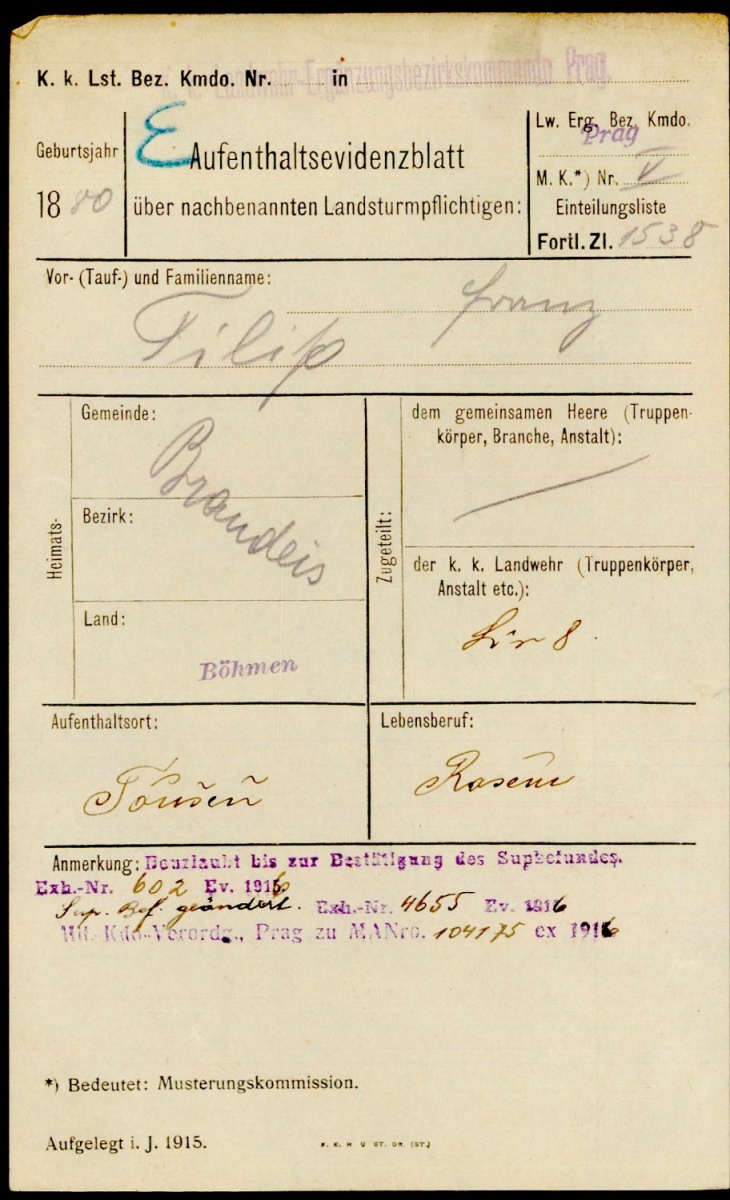 k. k. Landwehr-Ergänzungsbezirkskommando Prag.
K. k. Lst. Bez. Kmdo. Nr. in
Geburtsjahr
1880
E
Aufenthaltsevidenzblatt
über nachbenannten Landsturmpflichtigen:
Lw. Erg. Bez. Kmdo.
Prag
M. K.*) Nr. V
Einteilungsliste
Fortl. Zl. 1538
Vor- (Tauf-) und Familienname:
Filip Franz
Heimats-
Gemeinde:
Brandeis
Bezirk:
Land:
Böhmen
Zugeteilt:
dem gemeinsamen Heere (Truppen-
körper, Branche, Anstalt):
der k. k. Landwehr (Truppenkörper,
Anstalt etc.):
Lir 8.
Aufenthaltsort:
Toušeň
Lebensberuf:
Anmerkung: Beurlaubt bis zur Bestätigung des Supbefundes.
Exh.-Nr. 602 Ev. 1916
Sup. Bef. geändert. Exh.-Nr. 4655 Ev. 1916
Mil.-Kdo-Verordg., Prag zu MANro. 104175 ex 1916
*) Bedeutet: Musterungskommission.
Aufgelegt i. J. 1915.
K. K. H U ST. DR. (ST.)